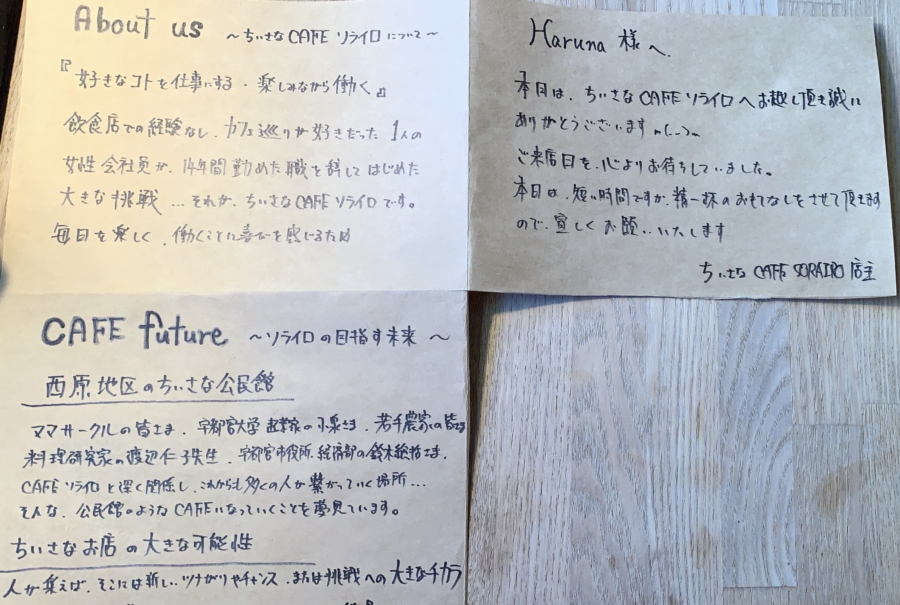 About us ～ちいさなCAFEソライロについて～
『好きなコトを仕事にする・楽しみながら働く』
飲食店での経験なし、カフェ巡りが好きだった1人の
女性会社員が、14年間勤めた職を辞してはじめた
大きな挑戦…それが、ちいさなCAFEソライロです。
毎日を楽しく、働くことに喜びを感じるため
Haruna 様へ
本日は、ちいさなCAFEソライロへお越し頂き誠に
ありがとうございますm(_ _)m
ご来店日を、心よりお待ちしていました。
本日は、短い時間ですが、精一杯のおもてなしをさせて頂きます
ので、宜しくお願いいたします
ちいさな CAFE SORAIRO 店主
CAFE future ～ソライロの目指す未来～
西原地区のちいさな公民館
ママサークルの皆さま、宇都宮大学 起業家の小泉さま、若手農家の皆さま
料理研究家の渡辺仁子先生、宇都宮市役所、経済部の鈴木さま、
CAFEソライロと深く関係し、これからも多くの人が繋がっていく場所…
そんな、公民館のようなCAFEになっていくことを夢見ています。
ちいさなお店の大きな可能性
人が集えば、そこには新しいツナガリやチャンス、または挑戦への大きなチカラ